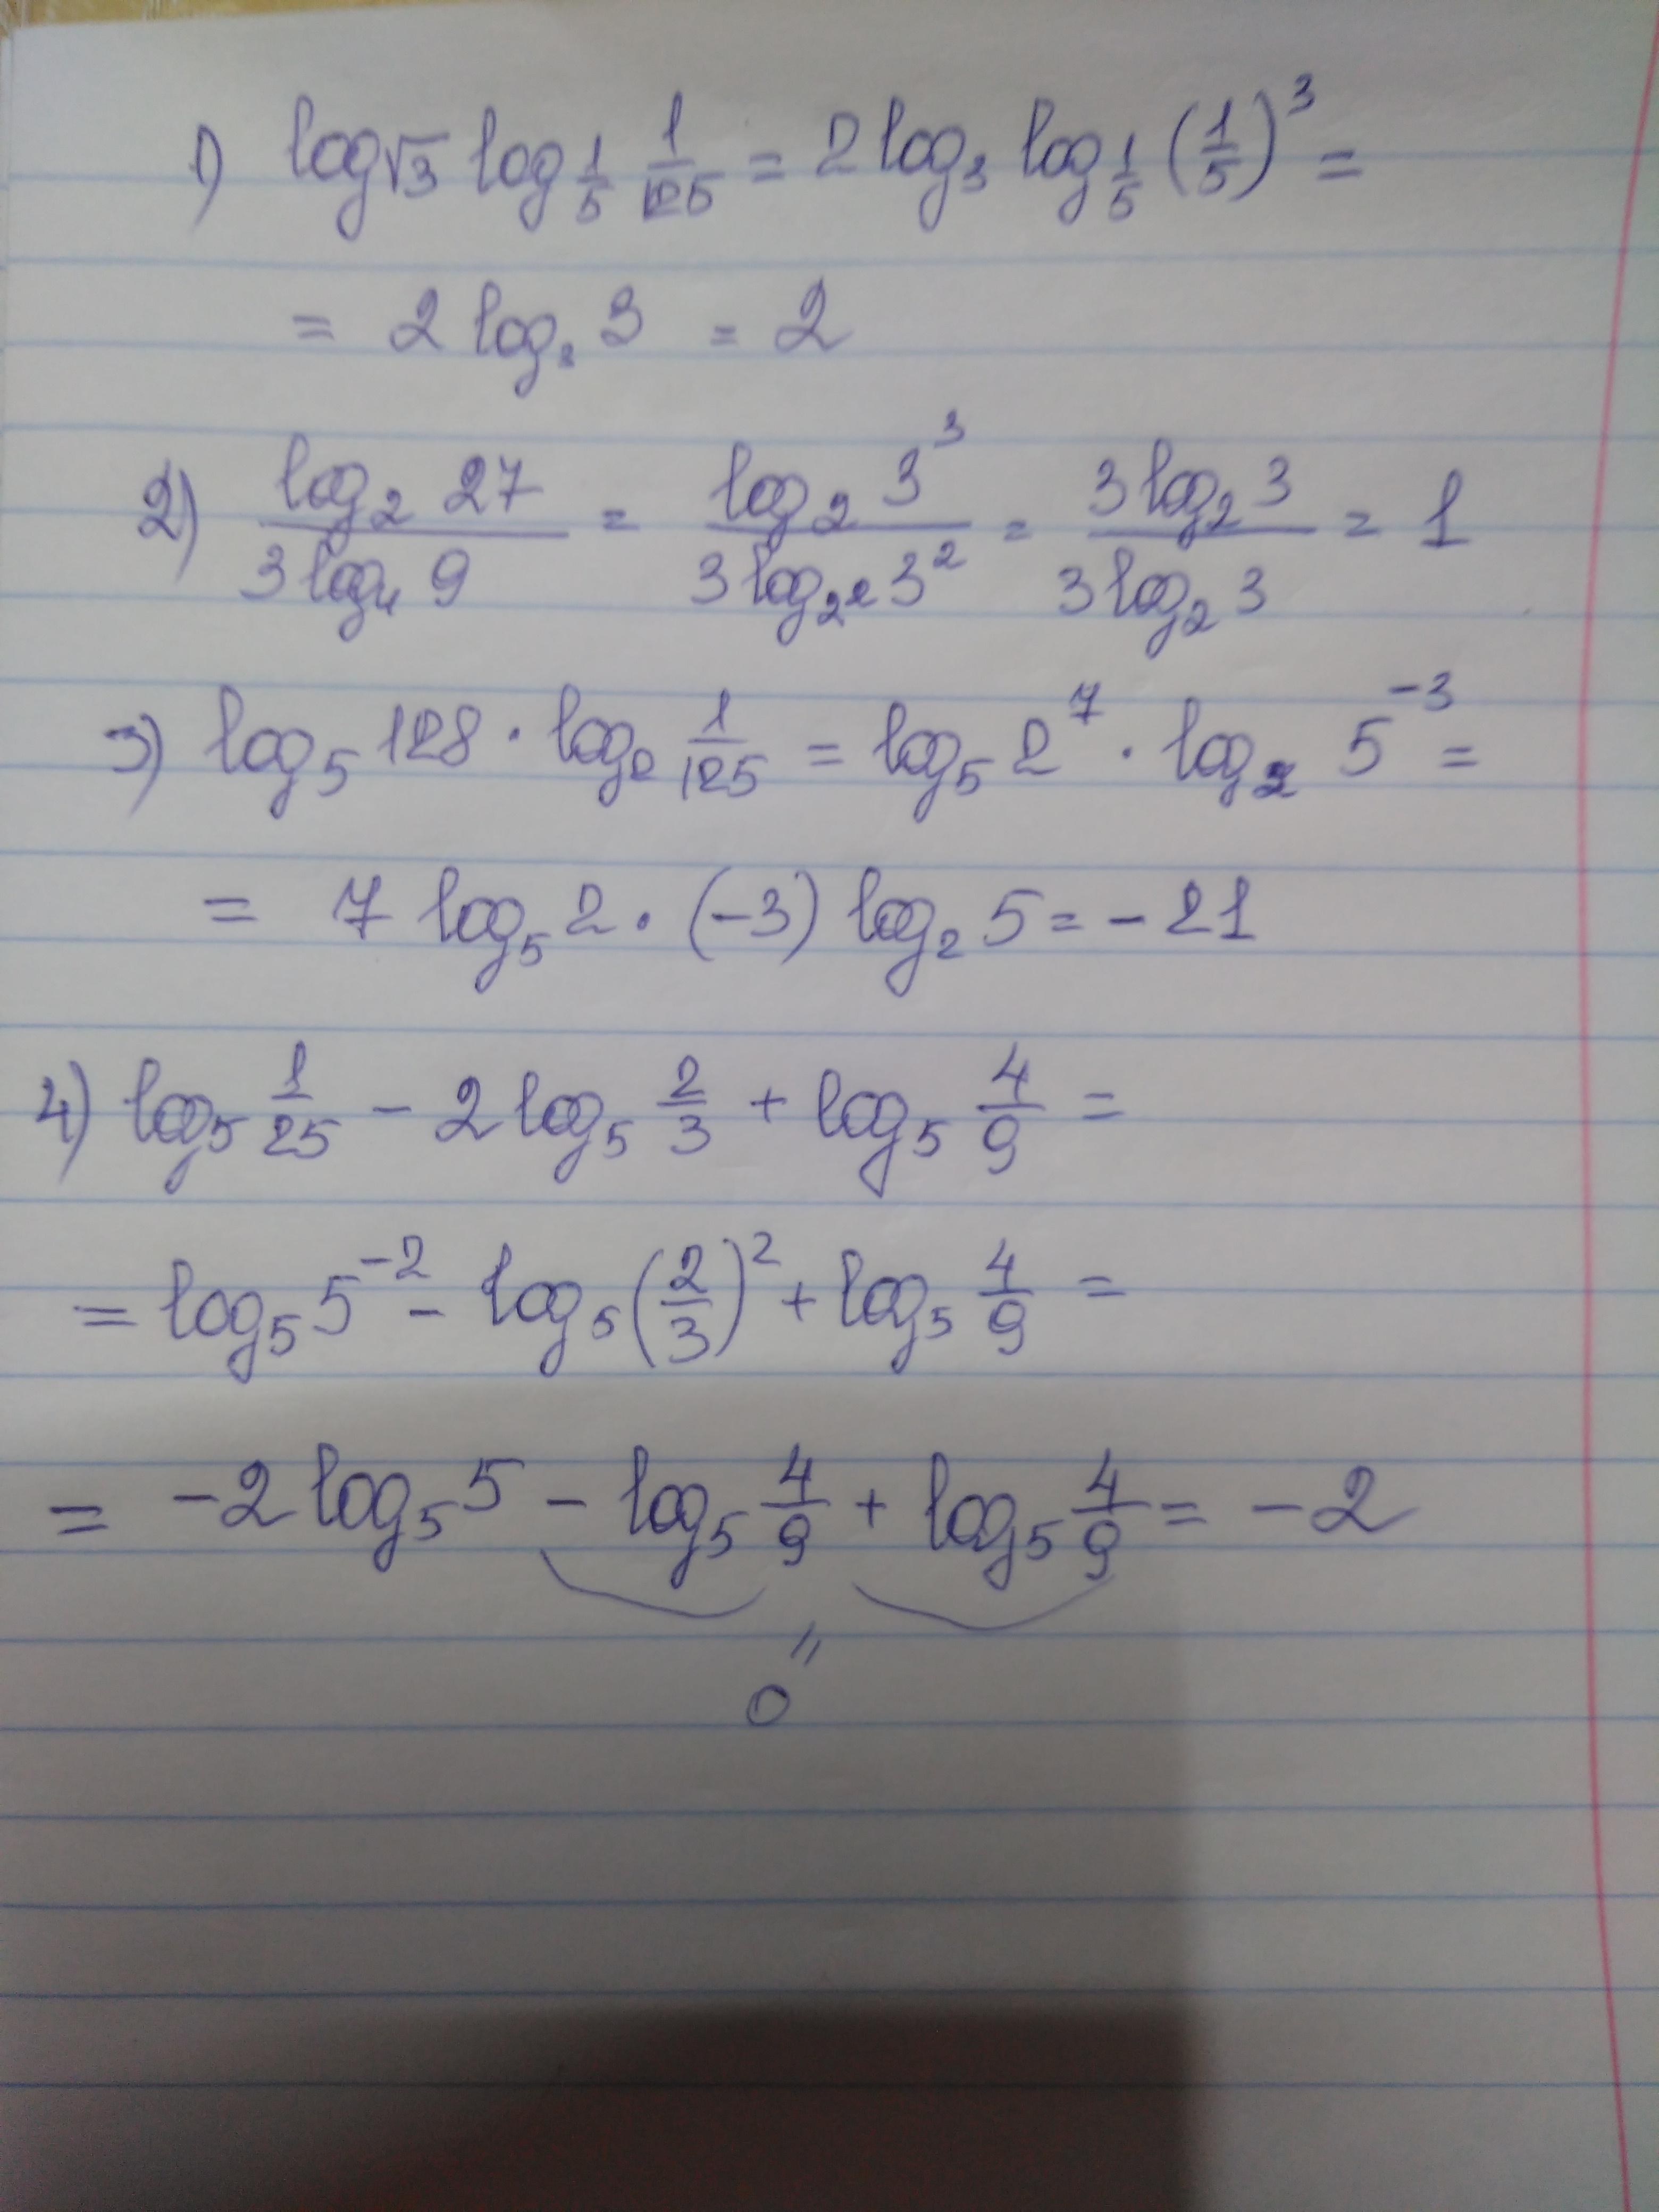 1) log√3 log1/5 1/125 = 2 log₃ log1/5 (1/5)³ =
= 2 log₃ 3 = 2
2) log₂ 27 / 3 log₄ 9 = log₂ 3³ / 3 log₂² 3² = 3 log₂ 3 / 3 log₂ 3 = 1
3) log₅ 128 · log₂ 1/125 = log₅ 2⁷ · log₂ 5⁻³ =
= 7 log₅ 2 · (-3) log₂ 5 = - 21
4) log₅ 1/25 - 2 log₅ 2/3 + log₅ 4/9 =
= log₅ 5⁻² - log₅ (2/3)² + log₅ 4/9 =
= -2 log₅ 5 - log₅ 4/9 + log₅ 4/9 = -2
"
0